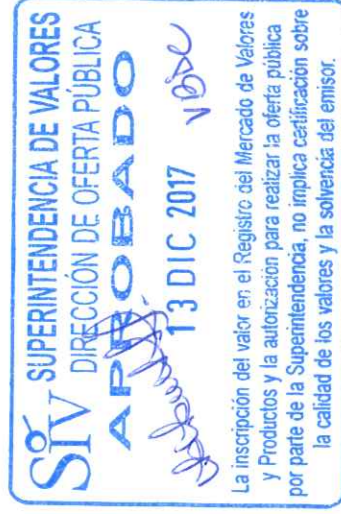 SIV SUPERINTENDENCIA DE VALORES
DIRECCIÓN DE OFERTA PÚBLICA
APROBADO
13 DIC 2017
La inscripción del valor en el Registro del Mercado de Valores
y Productos y la autorización para realizar la oferta pública
por parte de la Superintendencia, no implica certificación sobre
la calidad de los valores y la solvencia del emisor.